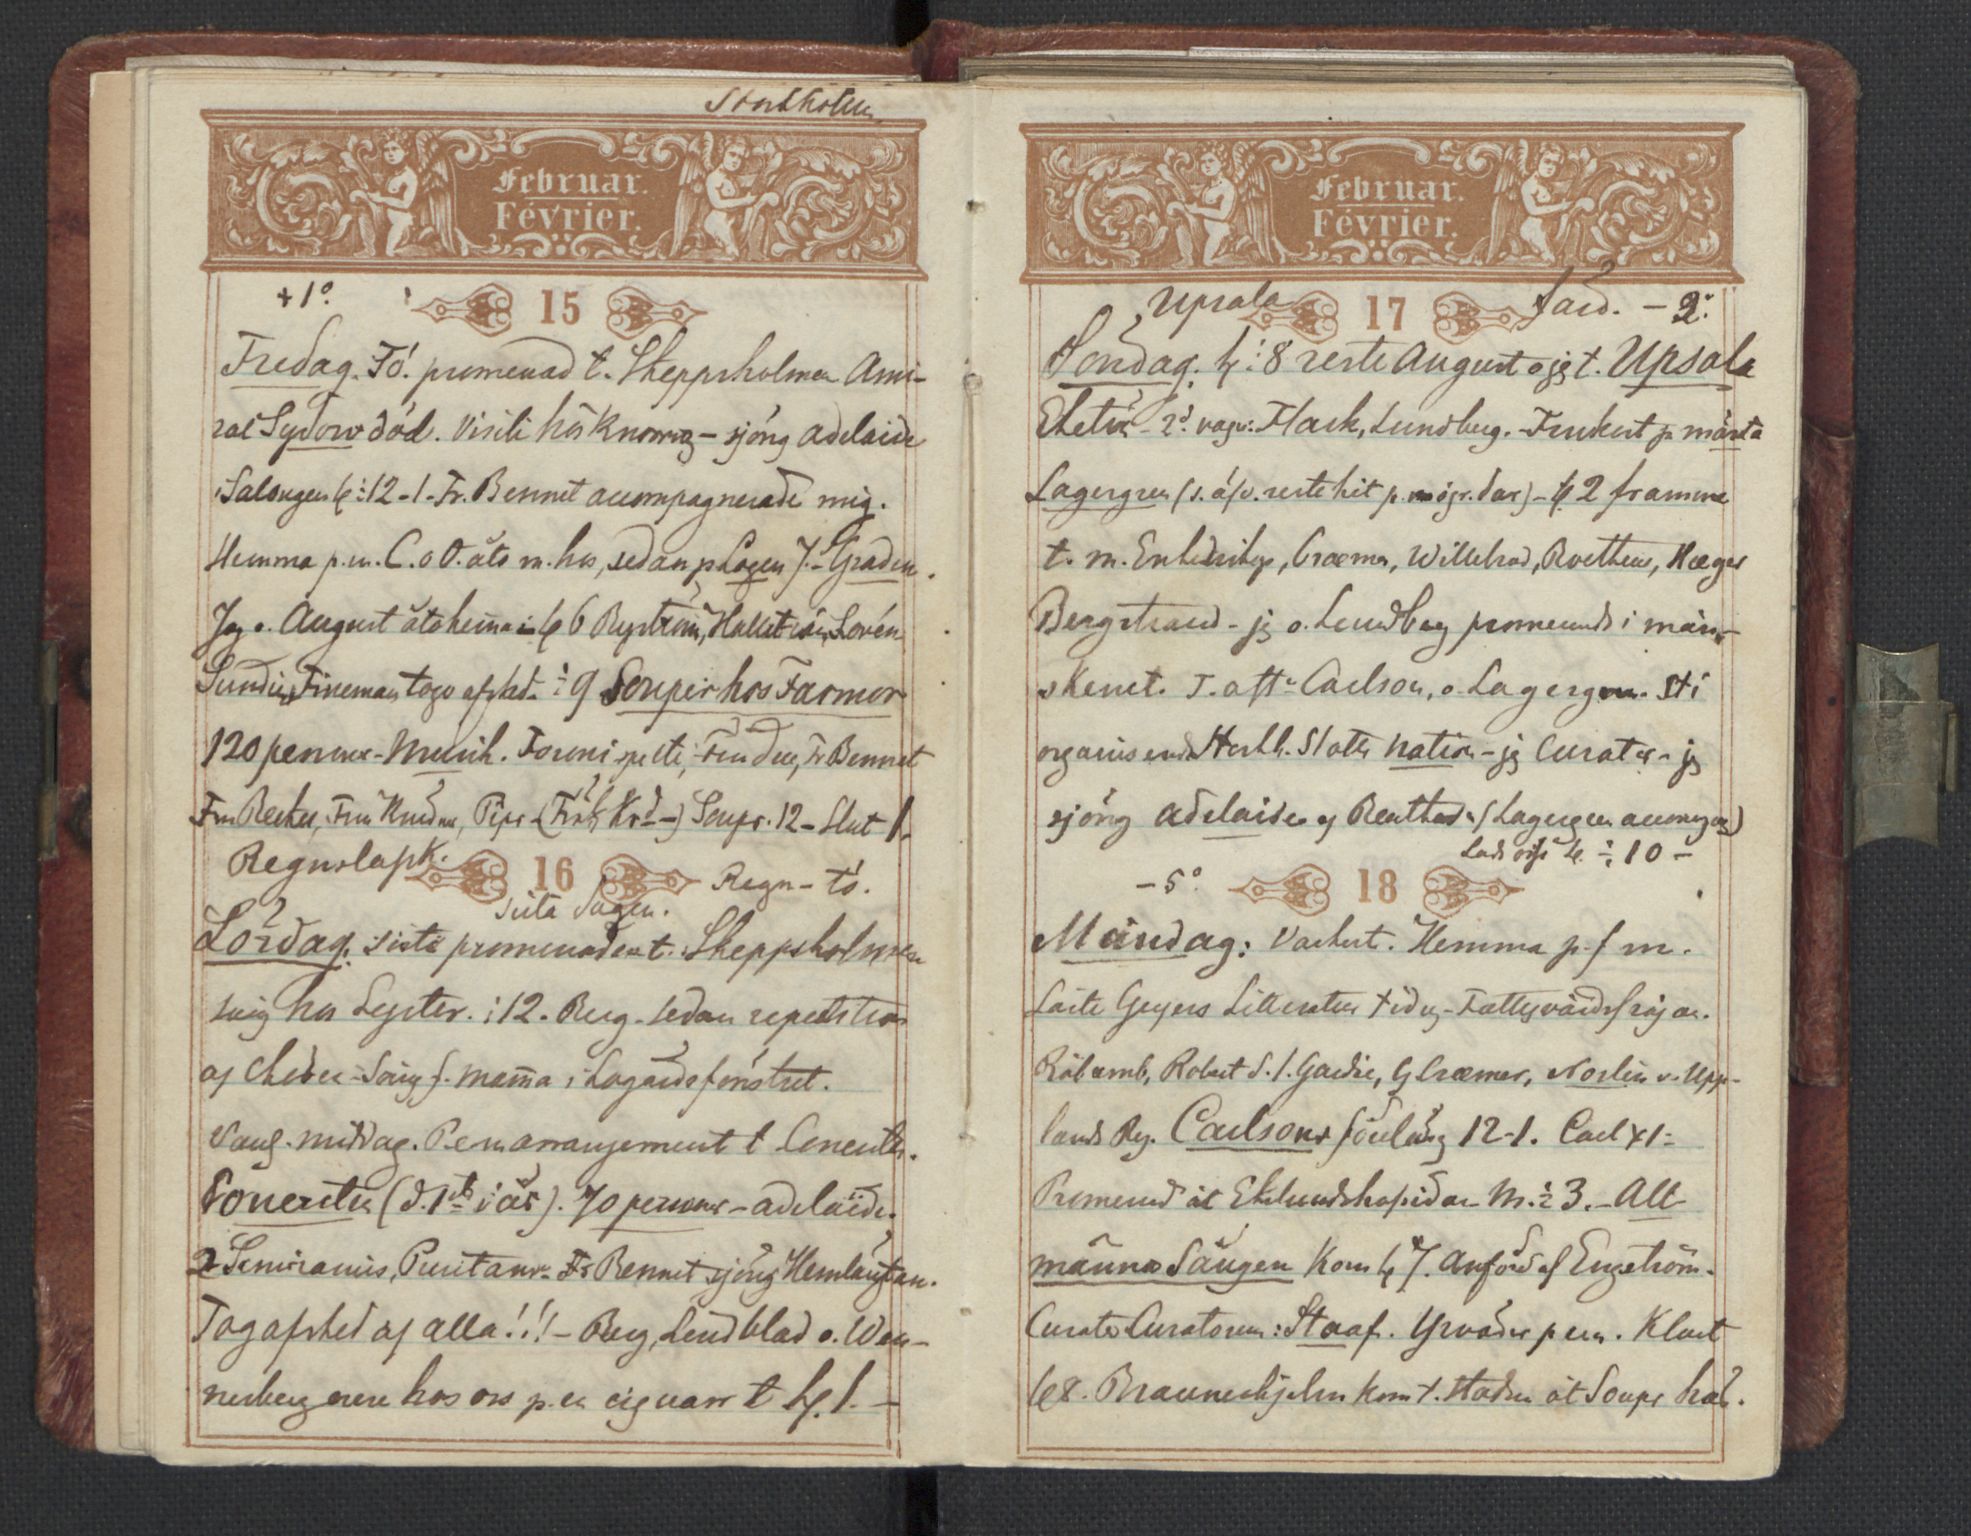 Stockholm
Februar.
Février.
+1° 15
Fredag. Fö! promenad t. Skeppsholmen Ami-
ral Sydow död. Visit hos Knorring - sjöng Adelaide
i Salongen kl ½12-1- Fr. Bennet accompagnerade mig.
Hemma p.m. C. o O. åto m. hos, sedan p Logen 7.- Graden.
Jag o. August åto hemma kl 6 Byström, Hallström, Lovén
Sundin, Fineman togo afsked. ½ 9 Souper hos Farmor
120 personer - Musik. Foroni spelte, Fr Bennet
Fru Becker, Fru Piper Soupr. 12 - Slut 1.
Regnslask. 16 Regn - tö.
sista dagen.
Lördag. sista promenaden t. Skeppsholmen
hos Lyster. ½12. Berg. sedan repetition
af Sång f. mamma i Logårdsfönstret.
middag. P.e.m arrangement t Concerten.
Concerten (d. 1sta i år). 70 personer - Adelaide.
2 Semiramis, Puritaner. Fr Bennet sjöng Hemlängtan.
Tog afsked af alla!!! - Berg, Lindblad o. Wen-
nerberg voro hos oss p. en cigarr t kl. 1. -
Februar.
Février.
Upsala 17 färd. - 2°
Söndag. kl ½8 reste August o jg t. Upsala
2d. vagn: Flack, Lundberg. - Frukost p märsta
Lagergren (s. reste hit p. dar) - kl 2 framme
t. m. Cræmer, Willebrad, Roethens, Kæger
Bergstrand - jg o. Lundberg promenerade i mån-
skenet. T. aftn Carlson, o. Lagergren. Sti
organiserade Stockh. Slotts nation - jg Curator - jg
sjöng Adelaide af Beethoven (Lagergren accompag)
Lade oss kl. ½ 10 -
-5° 18
Måndag: Vackert. Hemma p. f m.
Läste Geyers Litteratur tidn. - Fattigvårdsfrågan.
Råbamb, Robert D. l. Gardie, G Cræmer, Norlin v. Upp-
lands Reg. Carlsons föreläsg 12-1. Carl XI:
Promenad åt Ekelundshofsidan M. ½ 3. - All-
männa Sången kom kl 7. Anförd af Engström.
Curator Curatorum: Staaf. Yrväder p em. Klart
kl 8. Brauneskjelm kom t. staden åt Soupr hos.